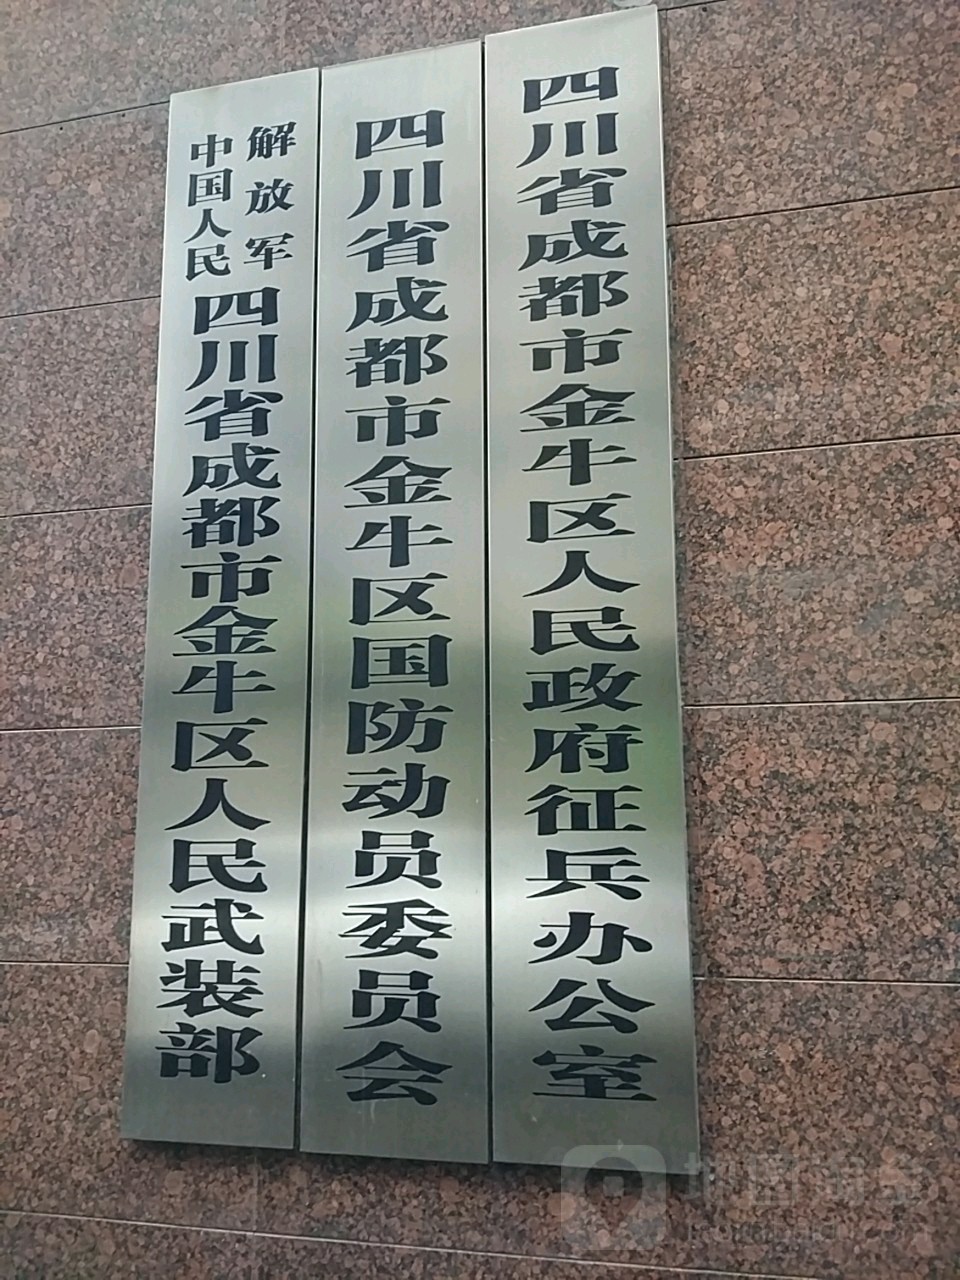 中国人民
解放军
四川省成都市金牛区人民武装部
四川省成都市金牛区国防动员委员会
四川省成都市金牛区人民政府征兵办公室
地图淘金